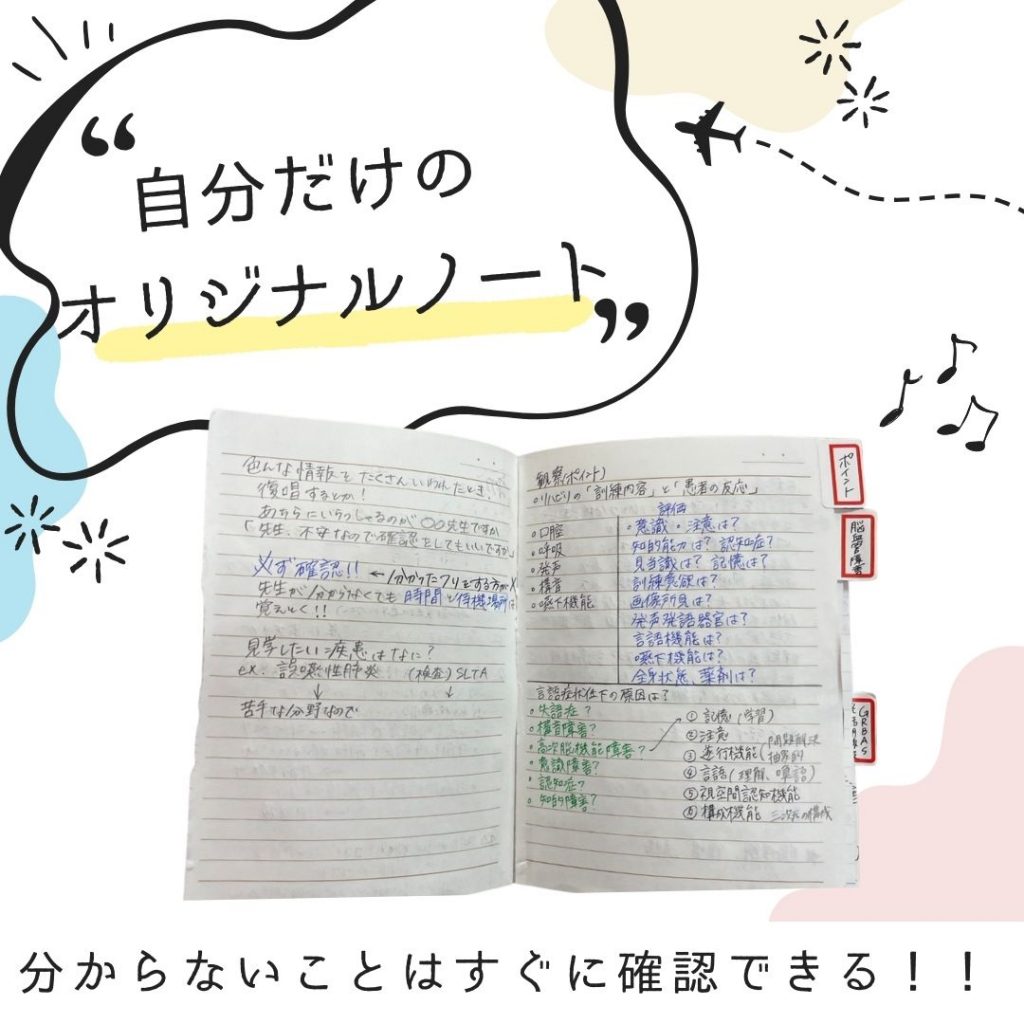 “自分だけの
オリジナルノート”
色んな情報をたくさんいわれたとき、
復唱するとか!
あちらにいらっしゃるのが〇〇先生ですか
「先生、不安なので確認をしてもいいですか」
必ず確認!! ←分かったフリをする方が×
先生が分からなくても時間と待機場所は
覚えとく!!
見学したい疾患はなに?
ex. 誤嚥性肺炎 (検査) SLTA
↓ ↓
苦手な分野なので
観察(ポイント)
○リハビリの「訓練内容」と「患者の反応」
評価
○口腔
○呼吸
○発声
○構音
○嚥下機能
○意識・注意は?
知的能力は? 認知症?
見当識は? 記憶は?
訓練意欲は?
画像所見は?
発声発語器官は?
言語機能は?
嚥下機能は?
全身状態、薬剤は?
言語症状低下の原因は?
○失語症?
○構音障害?
○高次脳機能障害?
○意識障害?
○認知症?
○知的障害?
① 記憶(学習)
② 注意
③ 遂行機能(問題解決
抽象的
④ 言語(理解、喚語)
⑤ 視空間認知機能
⑥ 構成機能 三次元の構成
ポイント
脳血管障害
GRBAS
分からないことはすぐに確認できる!!